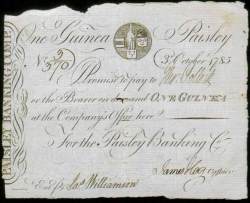 PAISLEY BANKING COMP
One Guinea Paisley
No 5/370 3 October 1785
Promise to pay to
or the Bearer on demand ONE GUINEA
at the Company's Office here
For the Paisley Banking Co.
James Hog Cashier
Entd Jas Williamson